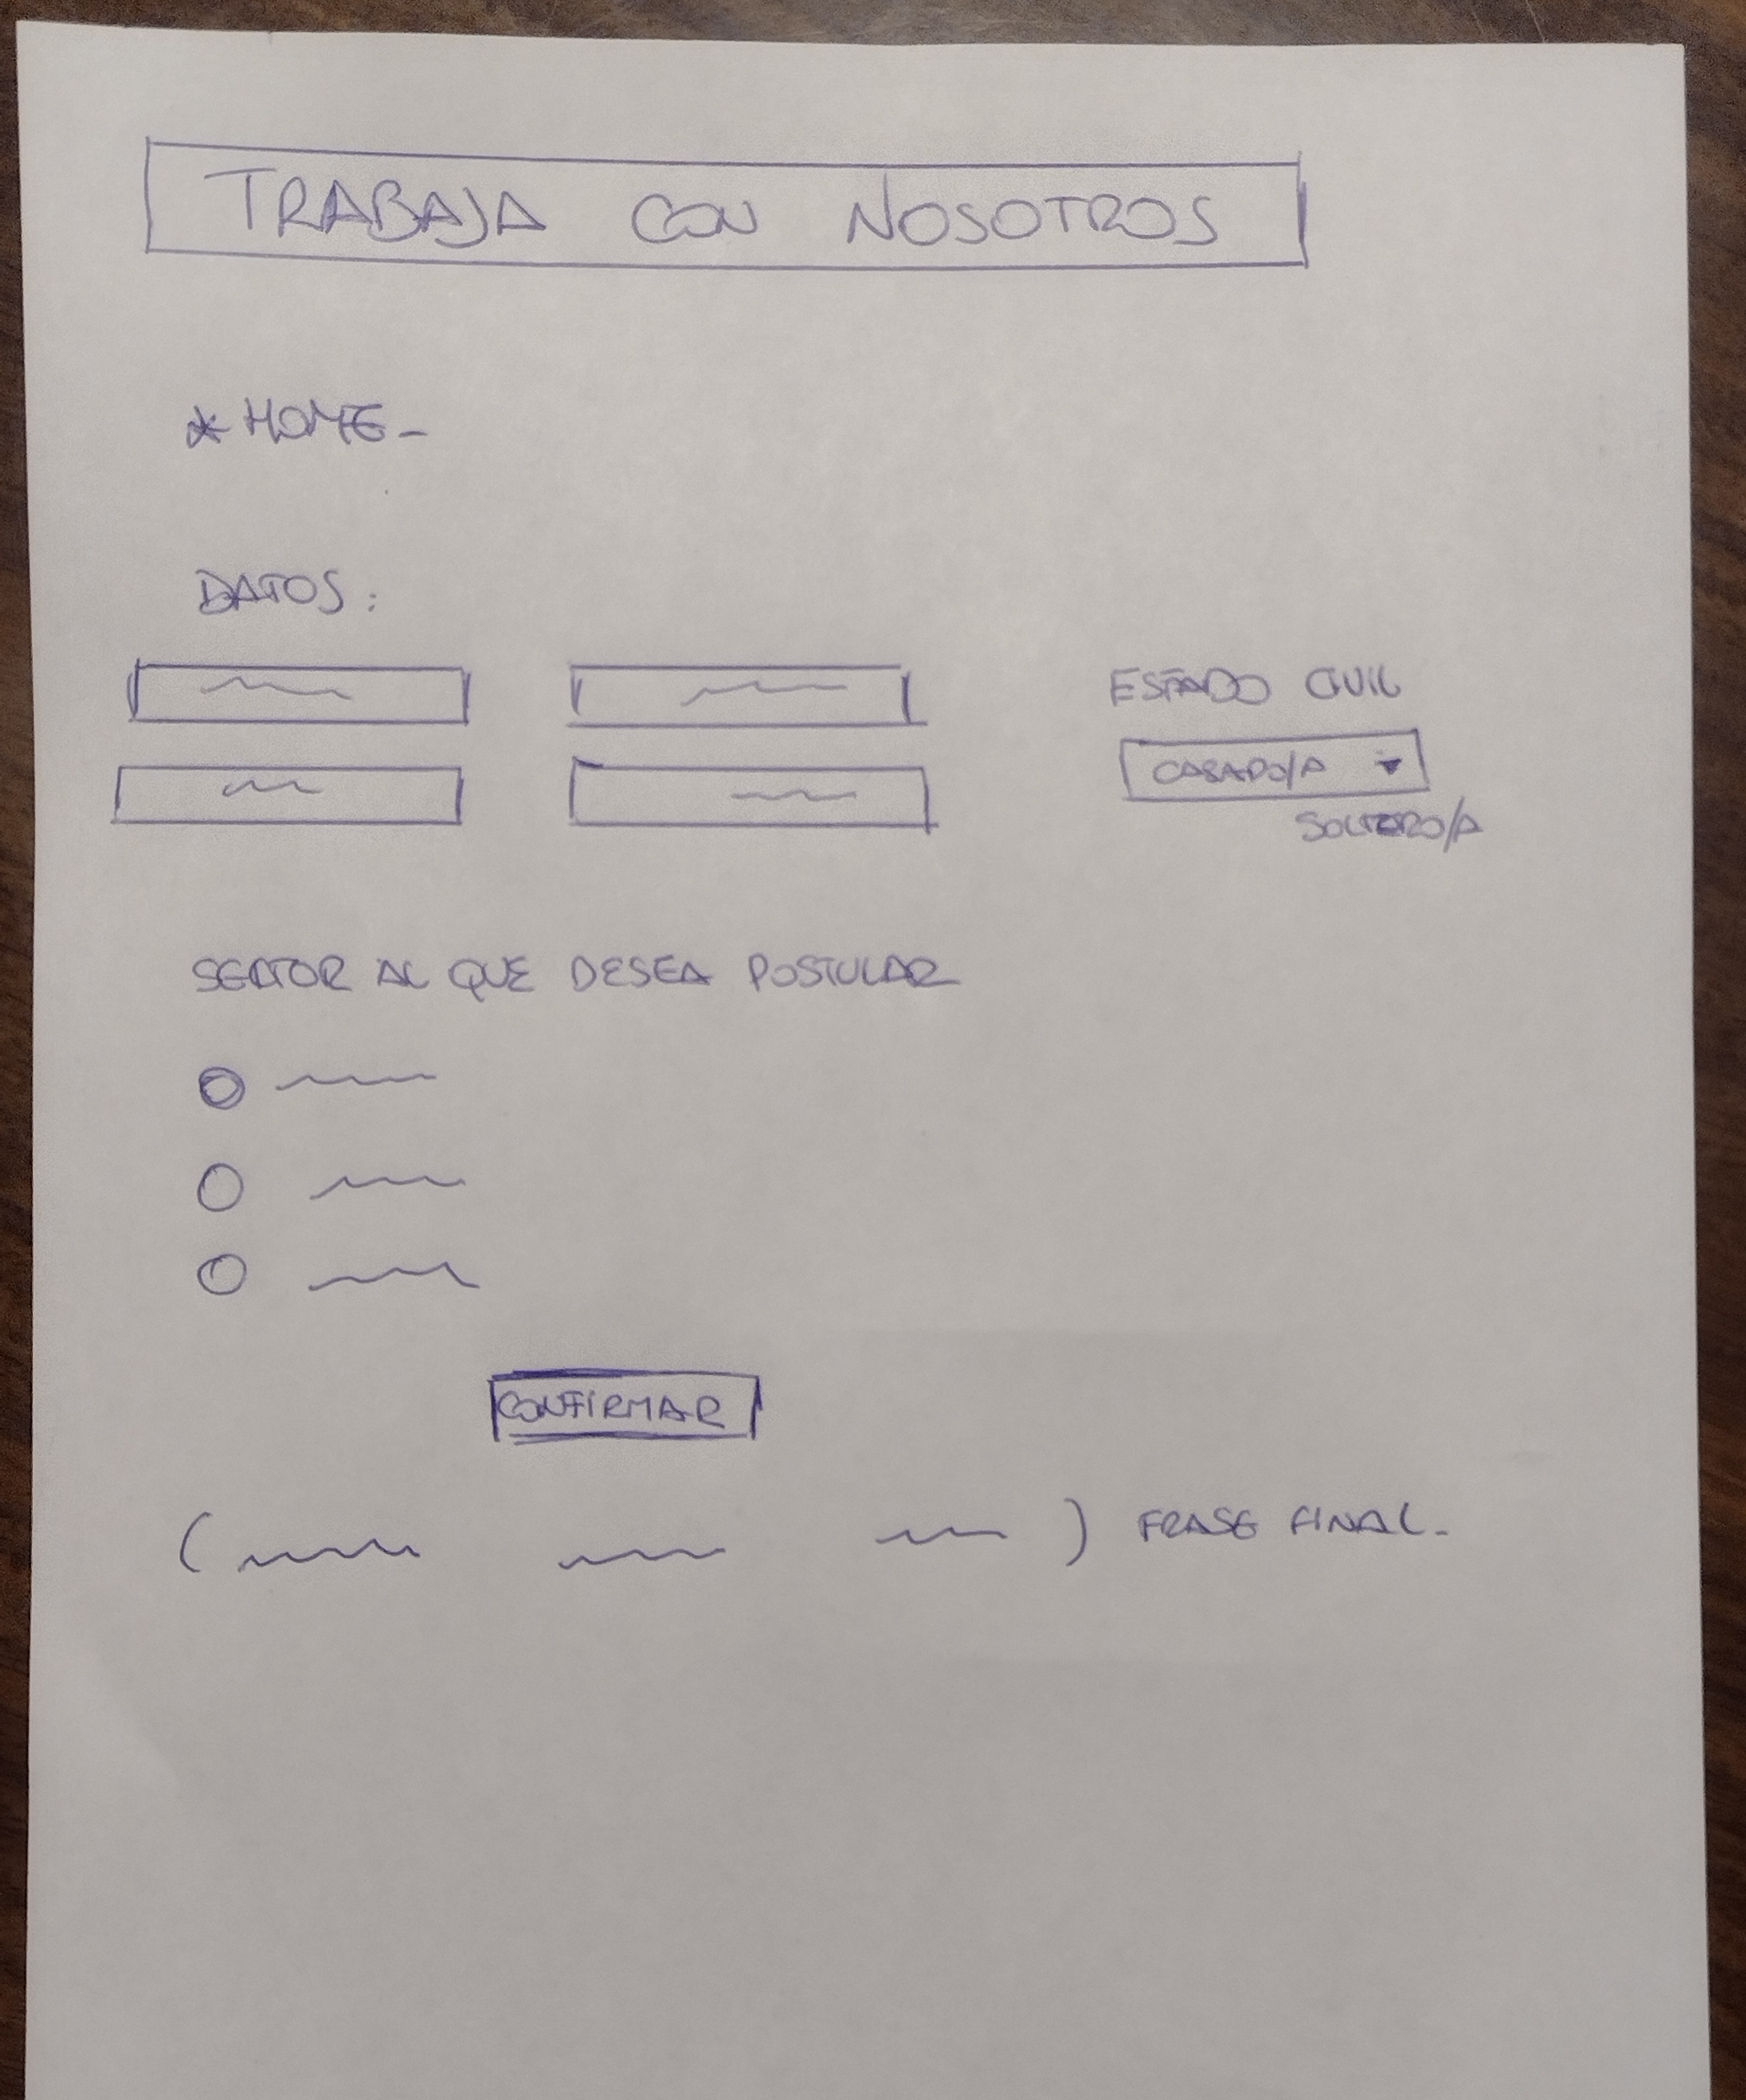 TRABAJA CON NOSOTROS
* HOME -
DATOS:
ESTADO CIVIL
CASADO/A ▼
SOLTERO/A
SECTOR AL QUE DESEA POSTULAR
CONFIRMAR
( ) FRASE FINAL -